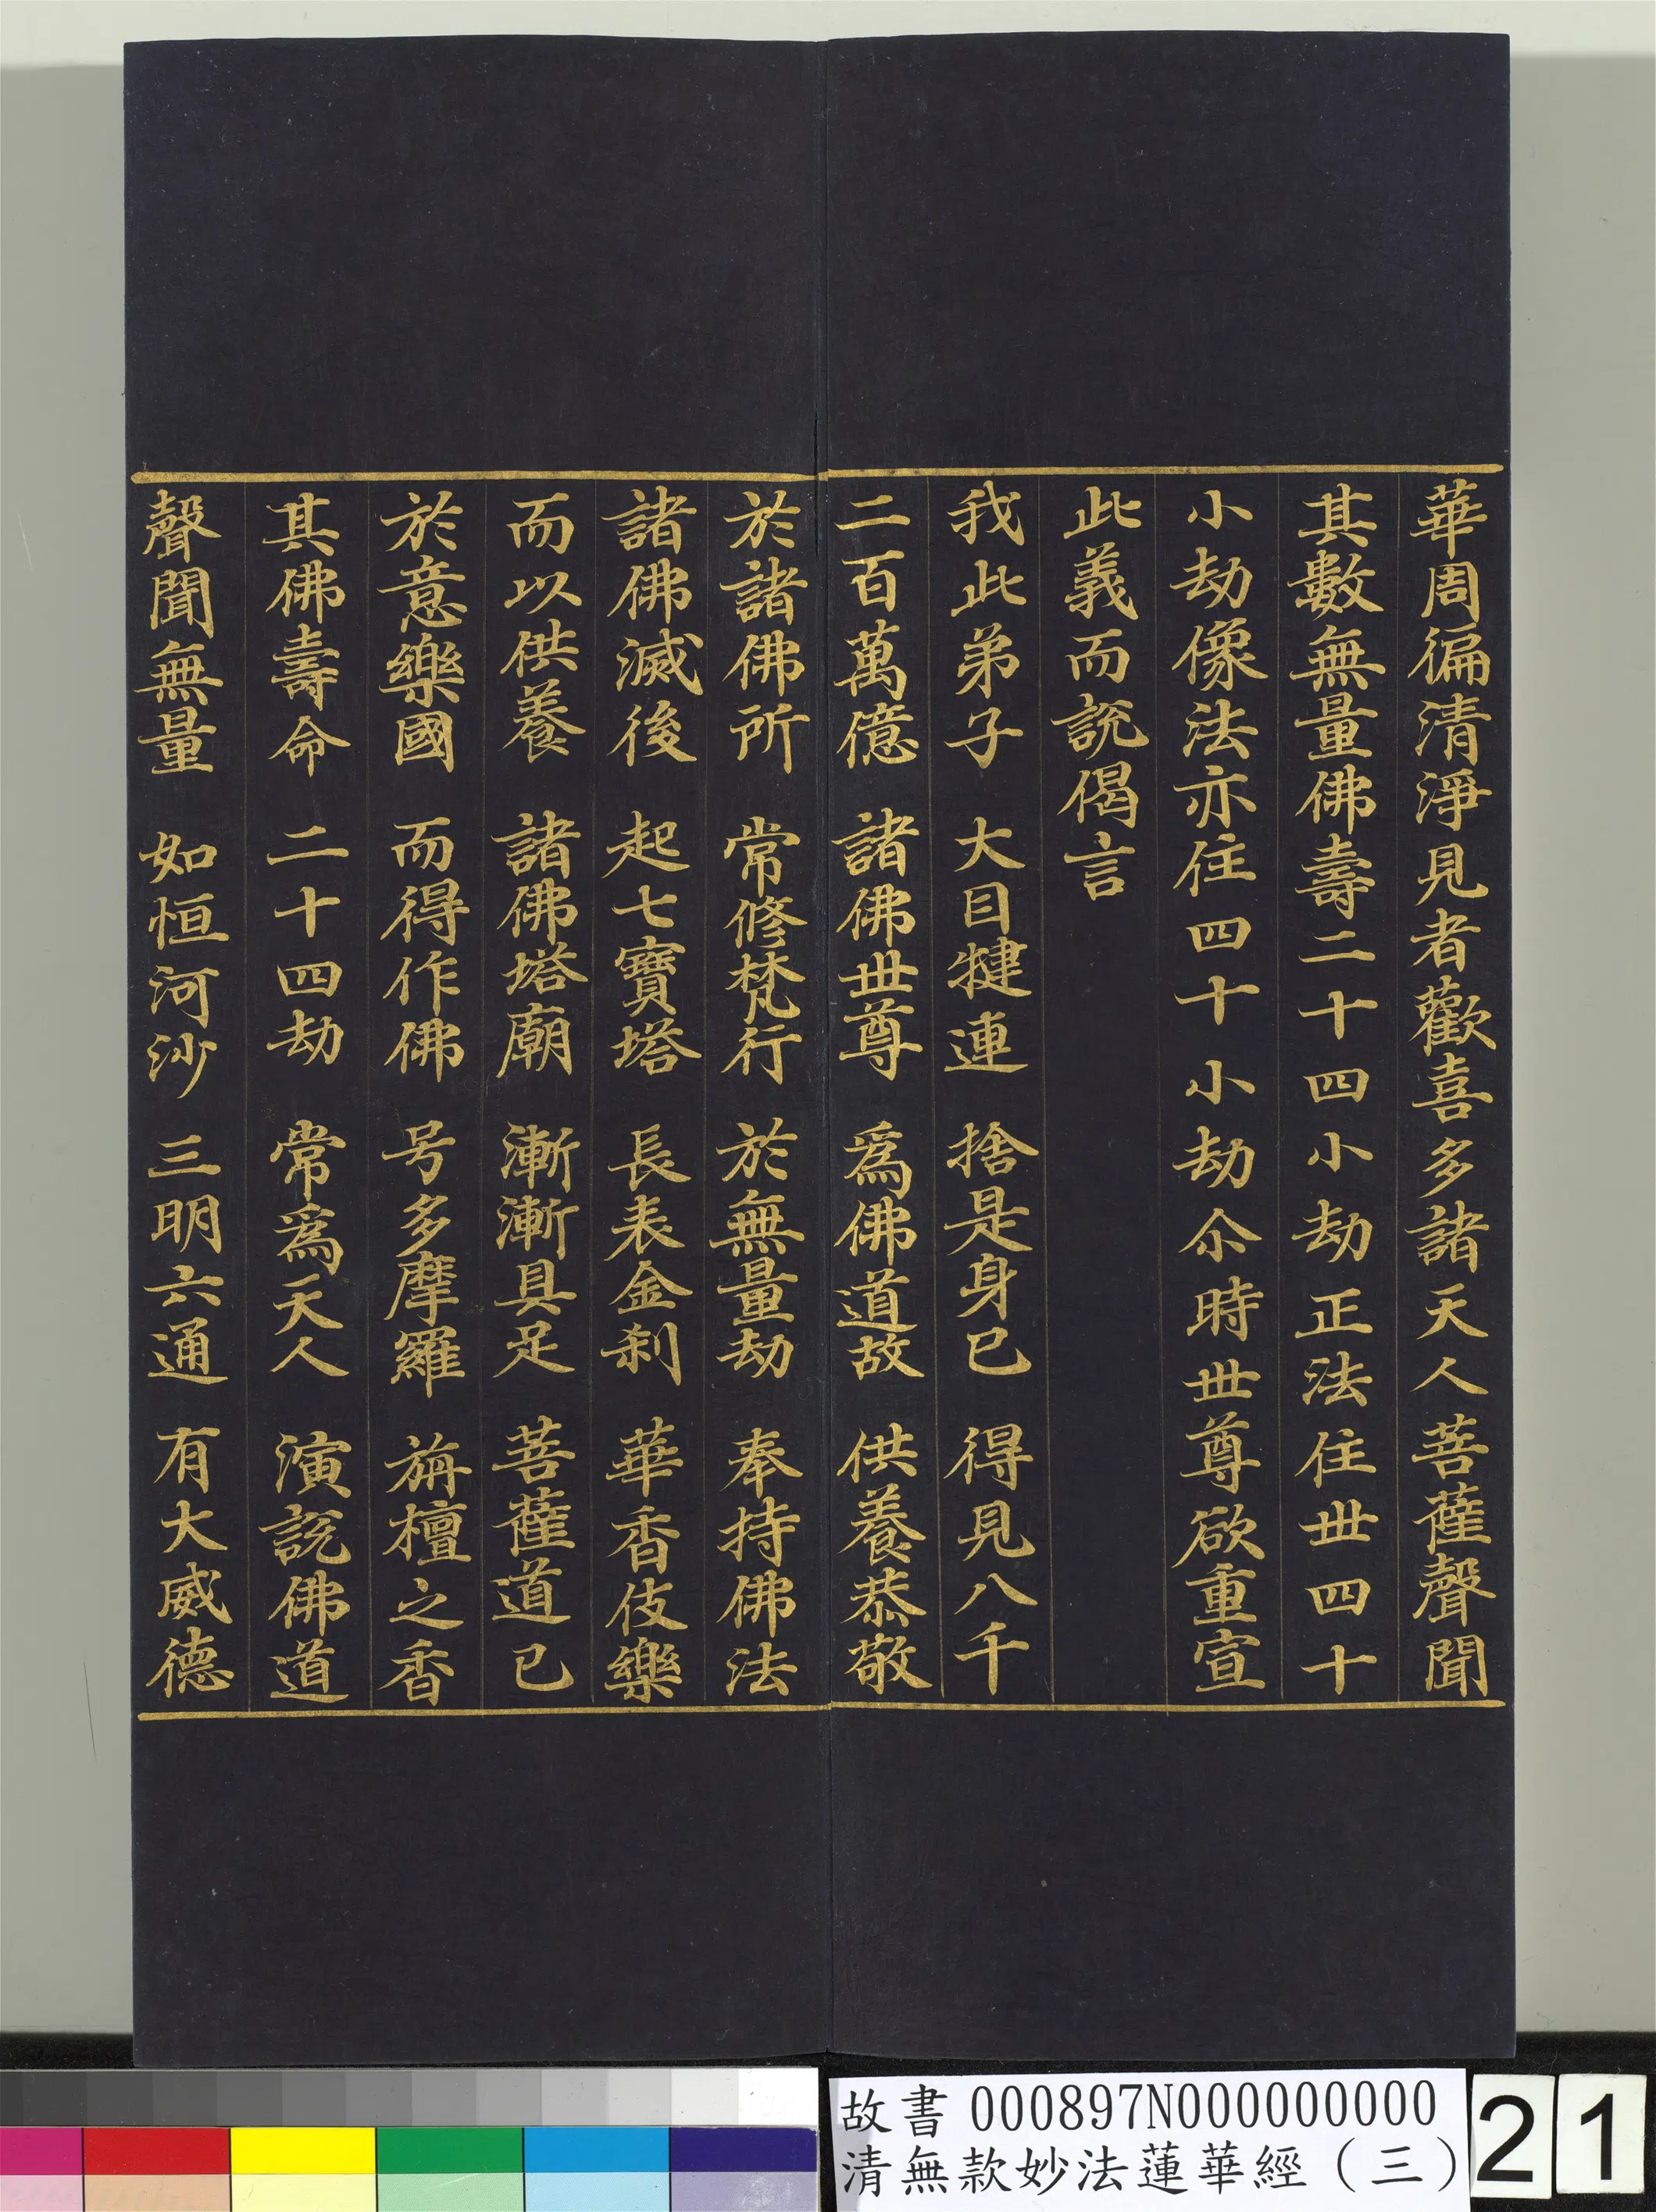 華周徧清淨見者歡喜多諸天人菩薩聲聞
其數無量佛壽二十四小劫正法住世四十
小劫像法亦住四十小劫尒時世尊欲重宣
此義而說偈言
我此弟子　大目犍連　捨是身已　得見八千
二百萬億　諸佛世尊　爲佛道故　供養恭敬
於諸佛所　常修梵行　於無量劫　奉持佛法
諸佛滅後　起七寶塔　長表金刹　華香伎樂
而以供養　諸佛塔廟　漸漸具足　菩薩道已
於意樂國　而得作佛　号多摩羅　旃檀之香
其佛壽命　二十四劫　常爲天人　演說佛道
聲聞無量　如恒河沙　三明六通　有大威德
故書 000897N000000000
清無款妙法蓮華經（三）
21